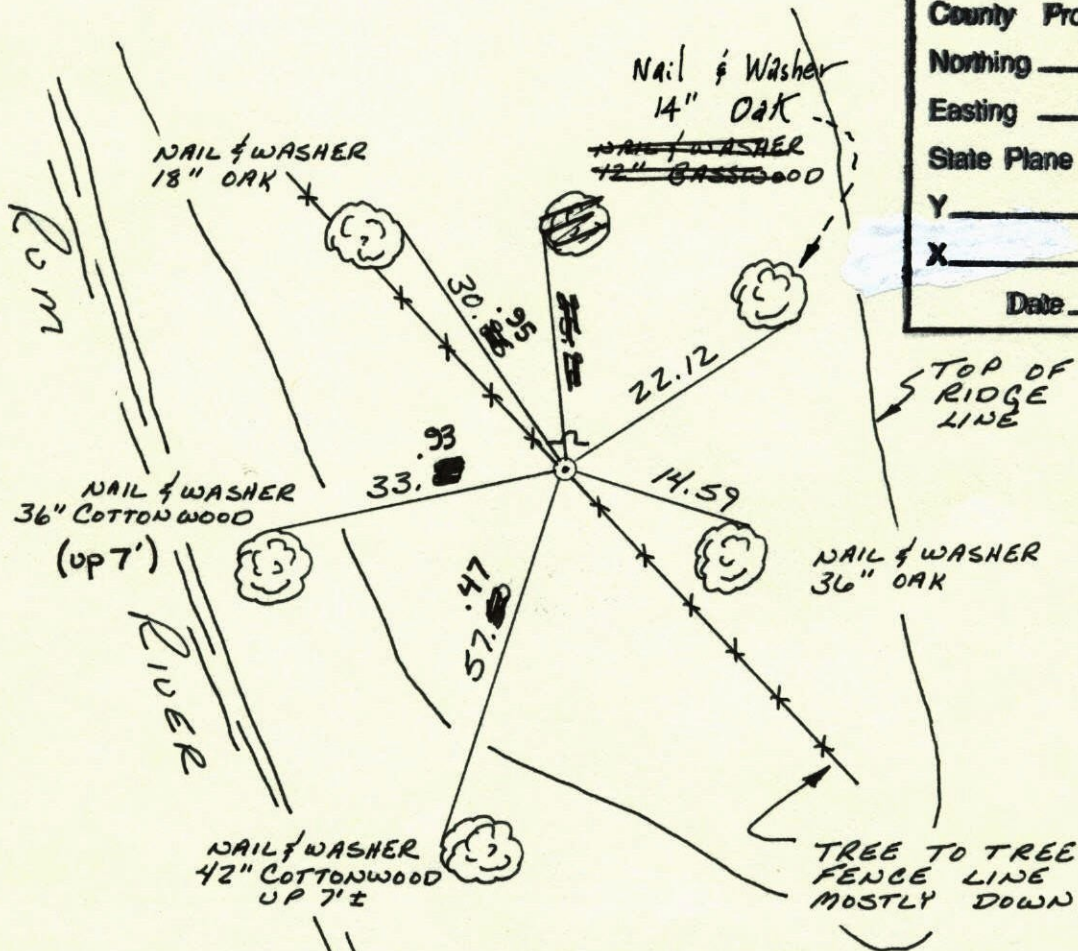 County Pro
Northing
Easting
State Plane
Y
X
Date
Nail & Washer
14" Oak
NAIL & WASHER
12" BASSWOOD
NAIL & WASHER
18" OAK
30. .95
22.12
TOP OF
RIDGE
LINE
33. .93
14.59
NAIL & WASHER
36" COTTONWOOD
(up 7')
NAIL & WASHER
36" OAK
57. .47
RUM
RIVER
NAIL & WASHER
42" COTTONWOOD
UP 7'±
TREE TO TREE
FENCE LINE
MOSTLY DOWN